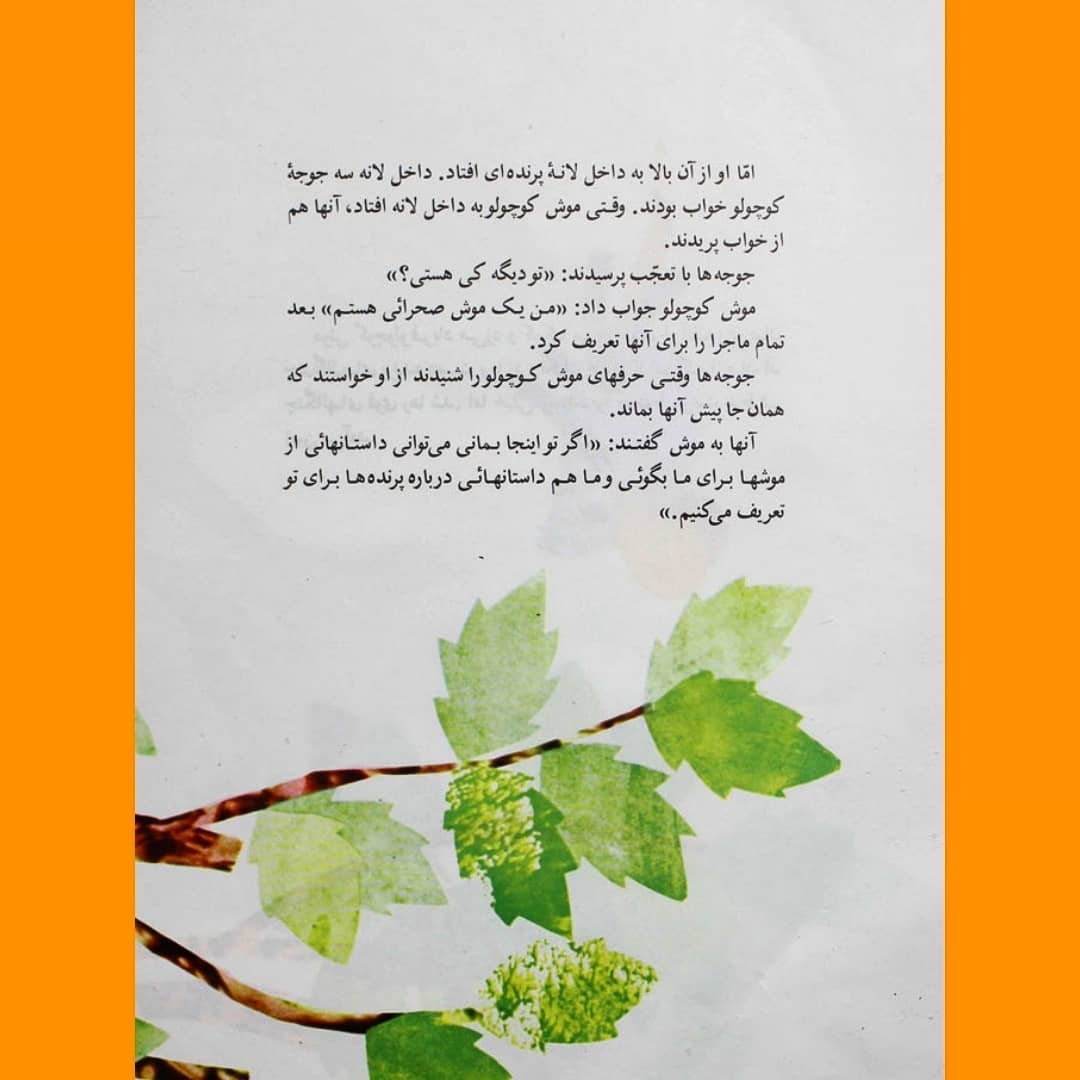 امّا او از آن بالا به داخل لانۀ پرنده‌ای افتاد. داخل لانه سه جوجۀ
کوچولو خواب بودند. وقتی موش کوچولو به داخل لانه افتاد، آنها هم
از خواب پریدند.
جوجه‌ها با تعجّب پرسیدند: «تو دیگه کی هستی؟»
موش کوچولو جواب داد: «من یک موش صحرائی هستم» بعد
تمام ماجرا را برای آنها تعریف کرد.
جوجه‌ها وقتی حرفهای موش کوچولو را شنیدند از او خواستند که
همان جا پیش آنها بماند.
آنها به موش گفتند: «اگر تو اینجا بمانی می‌توانی داستانهائی از
موشها برای ما بگوئی و ما هم داستانهائی درباره پرنده‌ها برای تو
تعریف می‌کنیم.»